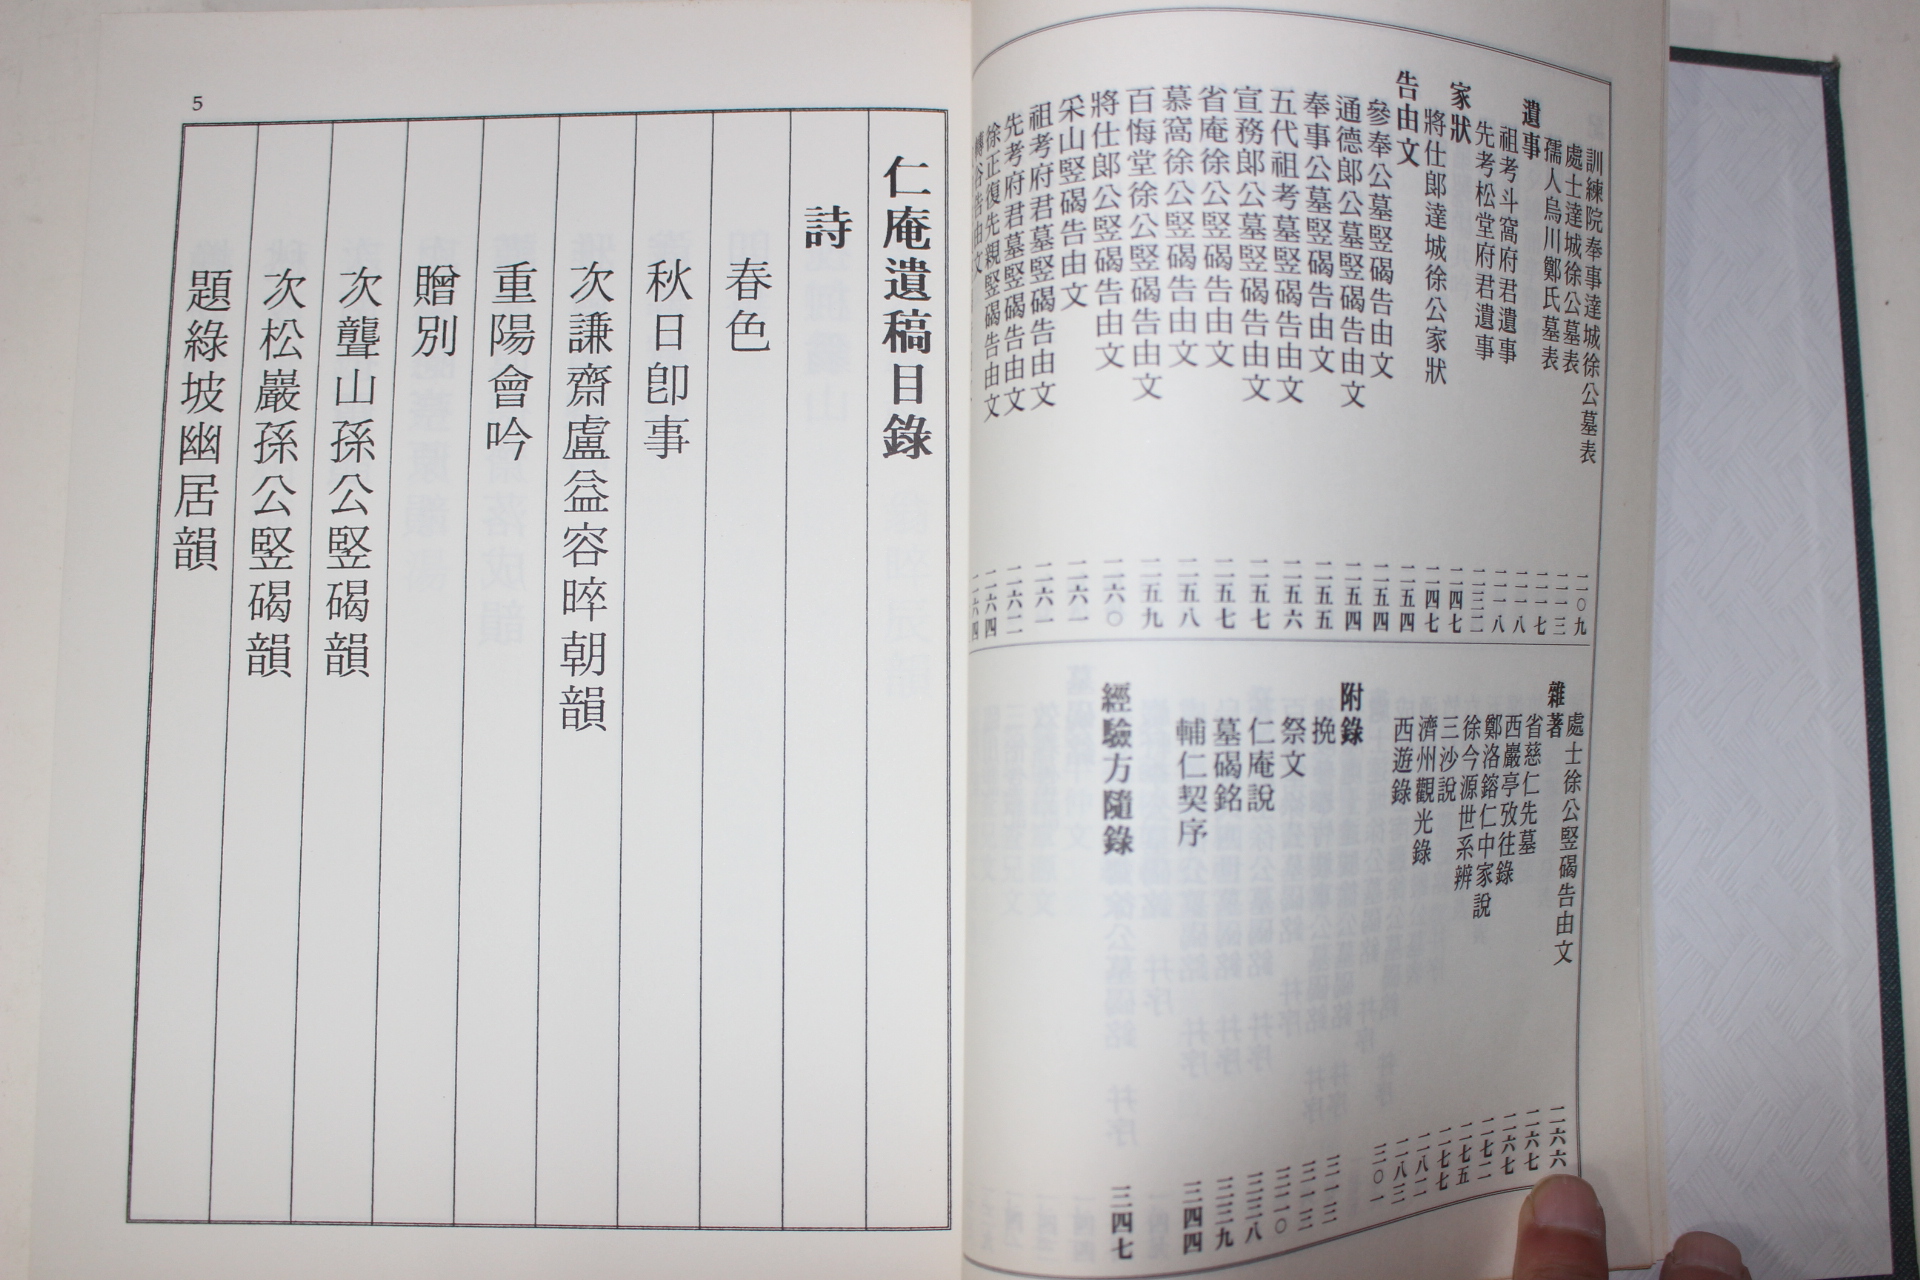 訓練院奉事達城徐公墓表 二〇九
處士達城徐公墓表 二一三
孺人烏川鄭氏墓表 二一七
遺事 二一八
祖考斗窩府君遺事 二一八
先考松堂府君遺事 二三二
家狀 二四七
將仕郞達城徐公家狀 二四七
告由文 二五四
參奉公墓竪碣告由文 二五四
通德郞公墓竪碣告由文 二五四
奉事公墓竪碣告由文 二五五
五代祖考墓竪碣告由文 二五六
宣務郞公墓竪碣告由文 二五七
省庵徐公竪碣告由文 二五七
慕窩徐公竪碣告由文 二五八
百悔堂徐公竪碣告由文 二五九
將仕郞公竪碣告由文 二六〇
采山竪碣告由文 二六一
祖考府君墓竪碣告由文 二六一
先考府君墓竪碣告由文 二六二
徐正復先親竪碣告由文 二六四
谷告由文 二六四
處士徐公竪碣告由文 二六六
雜著 二六七
省慈仁先墓 二六七
西巖亭攷往錄
鄭洛鎔仁中家說 二七二
徐今源世系辨 二七五
三沙說 二七七
濟州觀光錄 二八二
西遊錄 二八三
附錄 三〇一
挽 三一三
祭文 三一三
仁庵說 三二〇
墓碣銘 三三八
輔仁契序 三三九
三四四
經驗方隨錄 三四七
仁庵遺稿目錄
詩
春色
秋日卽事
次謙齋盧益容晬朝韻
重陽會吟
贈別
次聾山孫公竪碣韻
次松巖孫公竪碣韻
題綠坡幽居韻
5